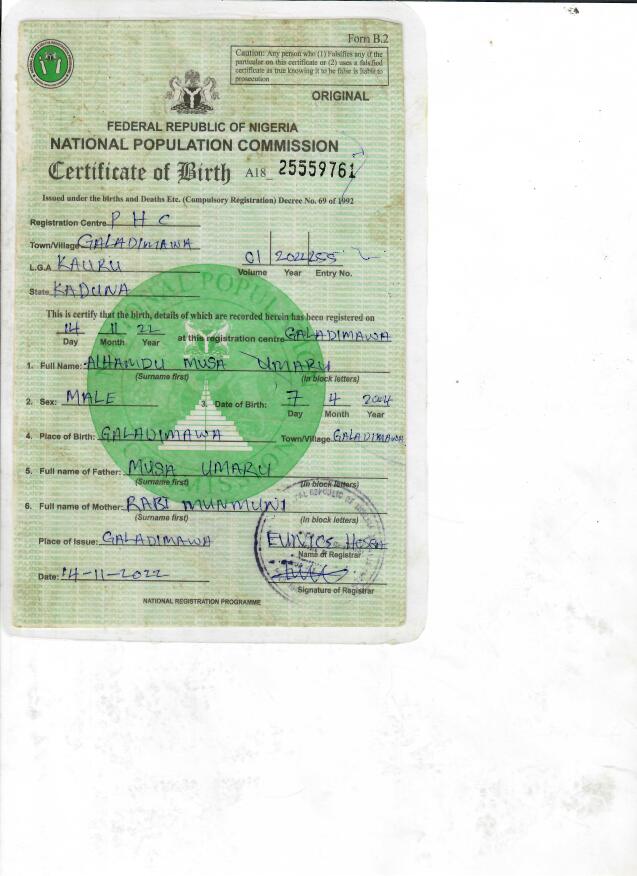 Form B.2
Caution: Any person who (1) Falsifies any if the
particular on this certificate or (2) uses a falsified
certificate as true knowing it to be false is liable to
prosecution
ORIGINAL
FEDERAL REPUBLIC OF NIGERIA
NATIONAL POPULATION COMMISSION
Certificate of Birth A18_ 25559761
Issued under the births and Deaths Etc. (Compulsory Registration) Decree No. 69 of 1992
Registration Centre P H C
Town/Village GALADIMAWA
L.G.A KAURU 01 2022 255
Volume Year Entry No.
State KADUNA
This is certify that the birth, details of which are recorded herein has been registered on
14 11 22 at this registration centre GALADIMAWA
Day Month Year
1. Full Name: ALHAMDU MUSA UMARU
(Surname first) (In block letters)
2. Sex: MALE 3. Date of Birth: 7 4 2004
Day Month Year
4. Place of Birth: GALADIMAWA Town/Village GALADIMAWA
5. Full name of Father: MUSA UMARU
(Surname first) (In block letters)
6. Full name of Mother: RABI MUNMUNI
(Surname first) (In block letters)
Place of Issue: GALADIMAWA
Name of Registrar
Date: 14-11-2022
Signature of Registrar
NATIONAL REGISTRATION PROGRAMME